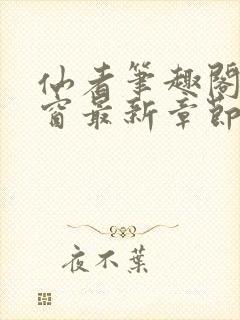 仙者筆趣閣
窗最新章節
夜不葉